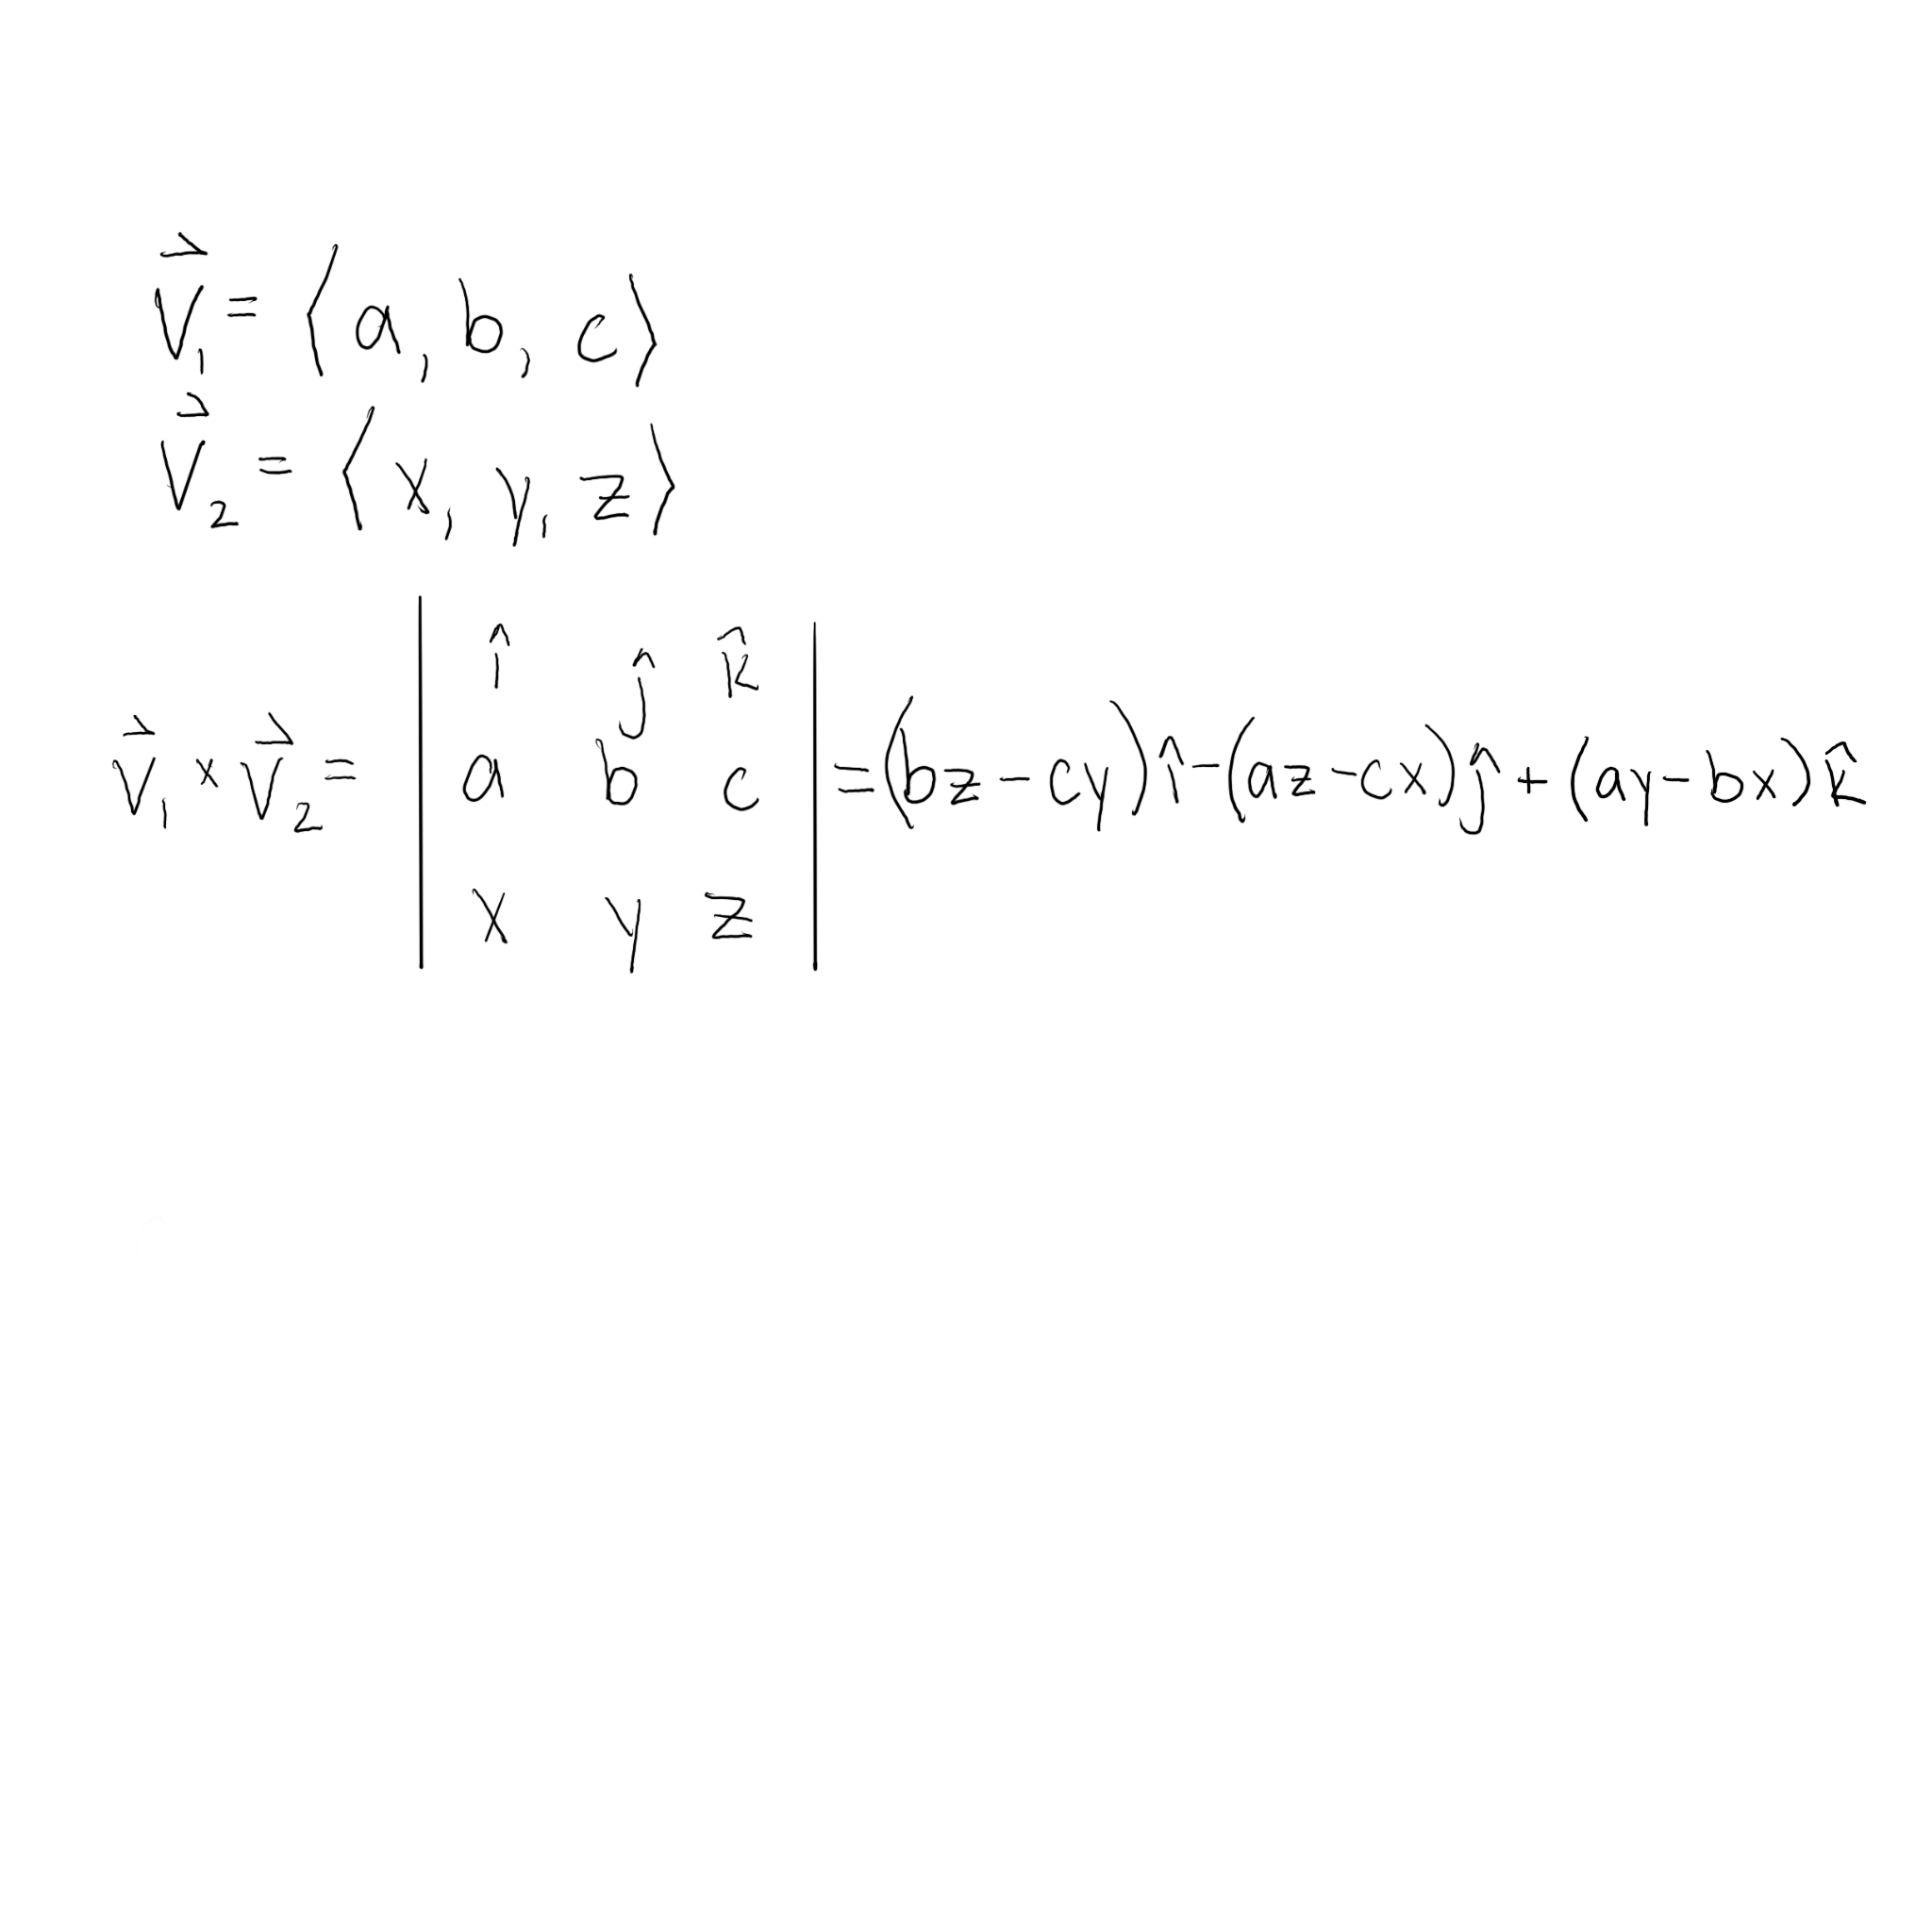 $\vec{V}_1 = \langle a, b, c \rangle$
$\vec{V}_2 = \langle x, y, z \rangle$
$\vec{V}_1 \times \vec{V}_2 = \begin{vmatrix} \hat{i} & \hat{j} & \hat{k} \\ a & b & c \\ x & y & z \end{vmatrix} = (bz - cy)\hat{i} - (az - cx)\hat{j} + (ay - bx)\hat{k}$